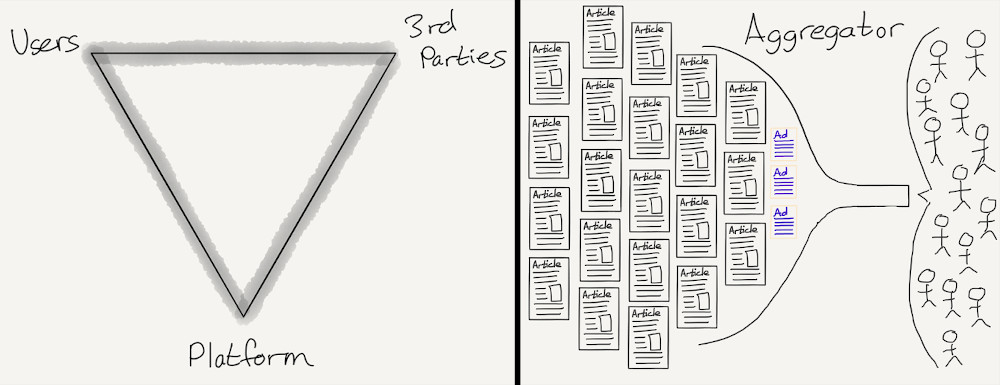 Users
3rd
Parties
Platform
Aggregator
Article
Article
Article
Article
Article
Article
Article
Article
Article
Article
Article
Article
Article
Article
Article
Article
Article
Article
Article
Article
Article
Ad
Ad
Ad